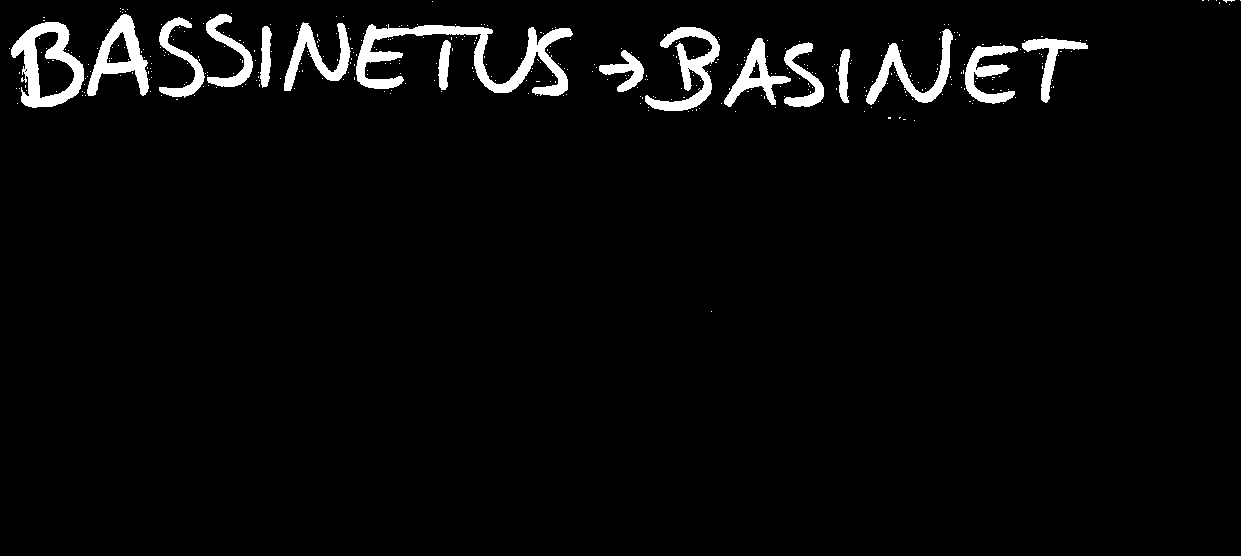 BASSINETUS → BASINET